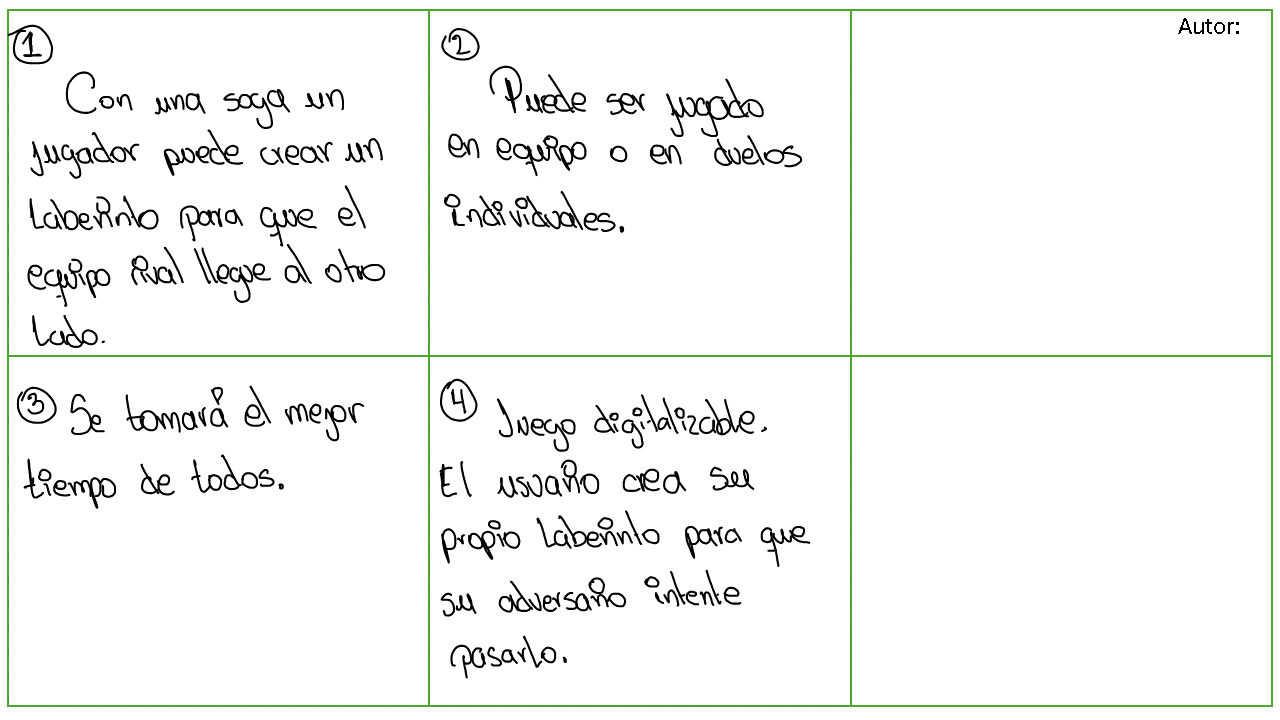 1
Con una soga un
jugador puede crear un
laberinto para que el
equipo rival llegue al otro
lado.
2
Puede ser jugado
en equipo o en duelos
individuales.
Autor:
3 Se tomará el mejor
tiempo de todos.
4 Juego digitalizable.
El usuario crea su
propio laberinto para que
su adversario intente
pasarlo.